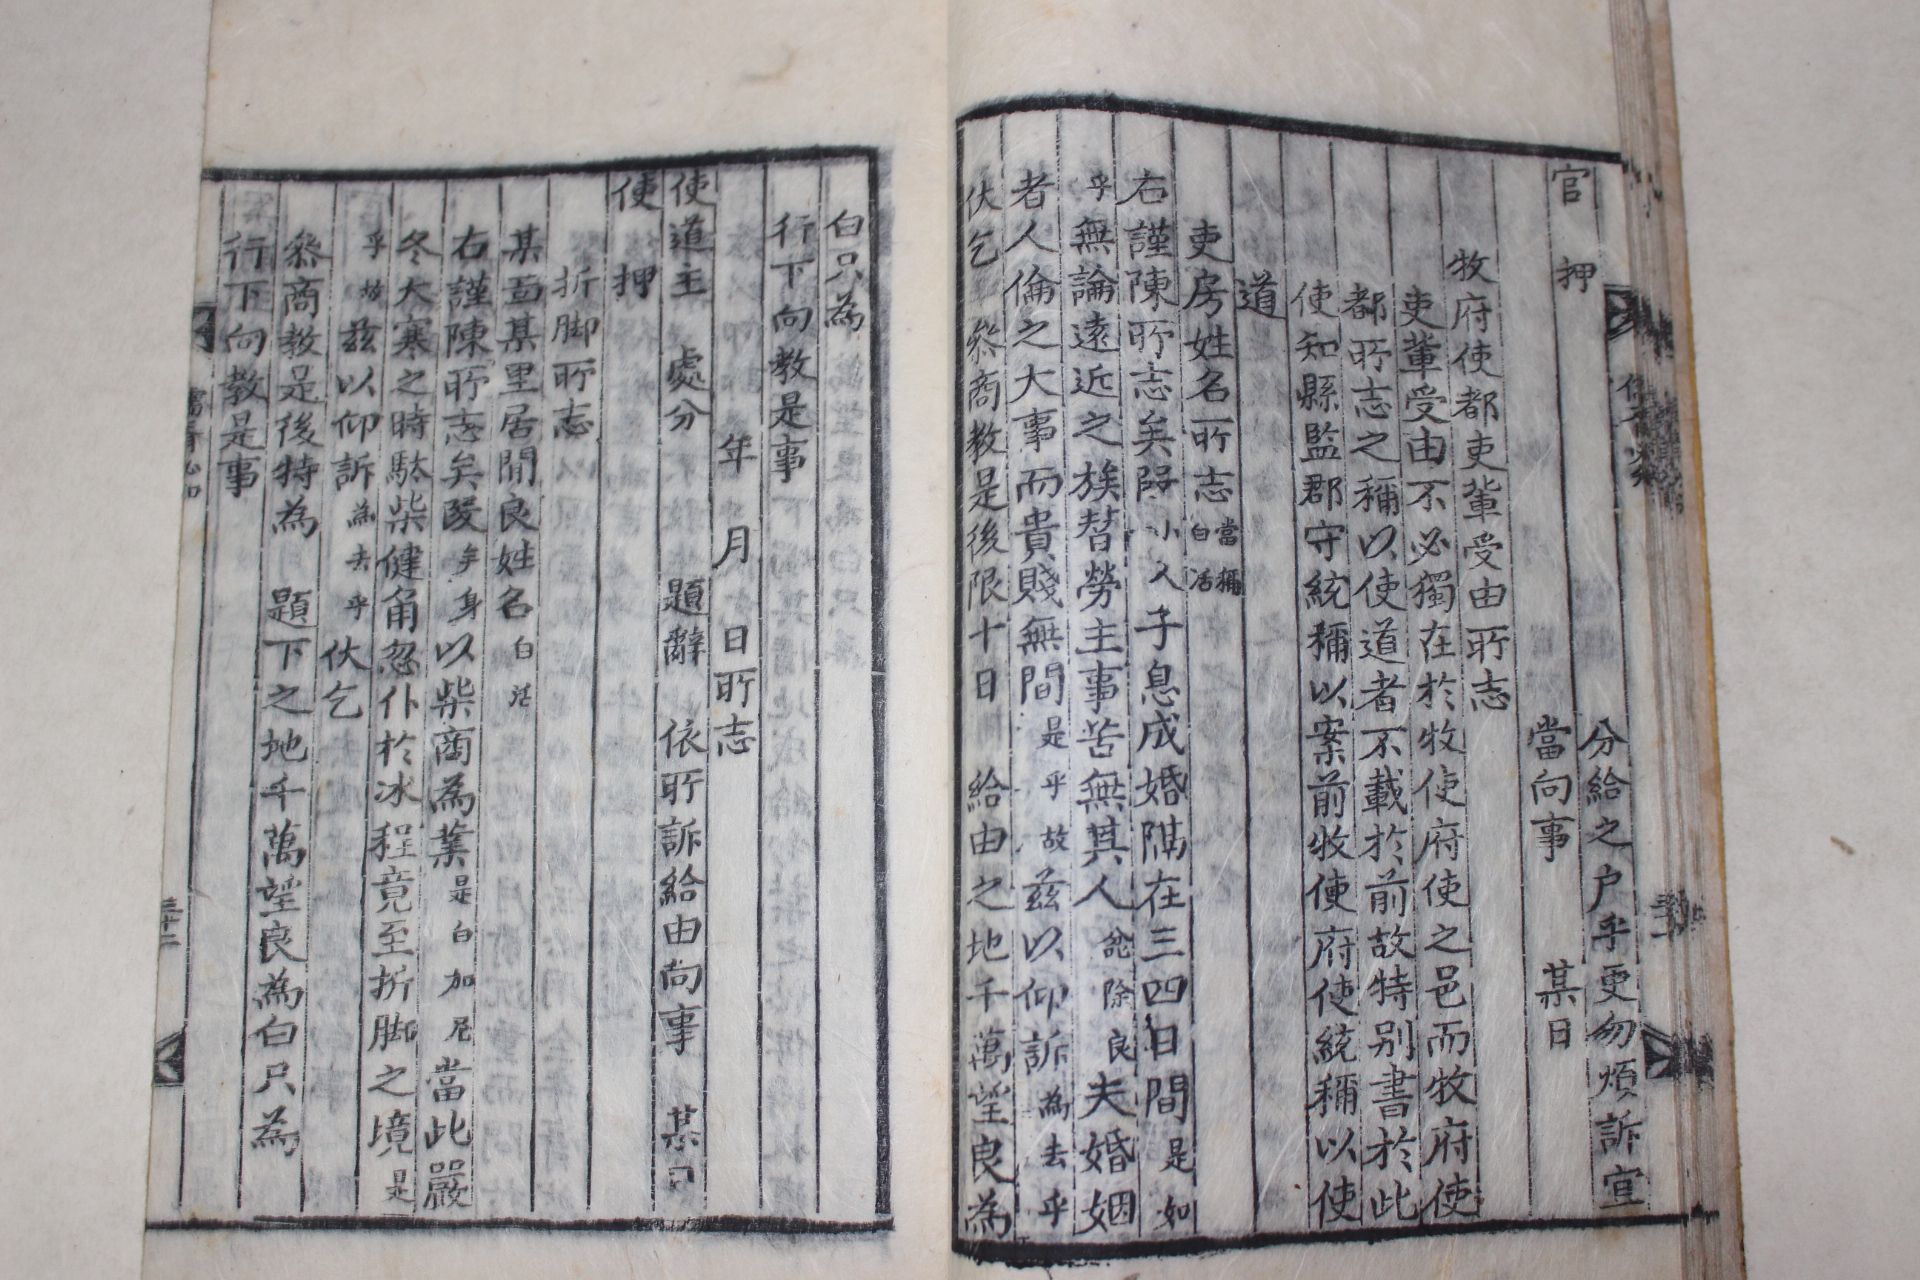 分給之戶乎更勿煩訴宣
當向事 某日
官 押
牧府使都吏軰受由所志
吏軰受由不必獨在於牧使府使之邑而牧府使
都所志之稱以使道者不載於前故特別書於此
使知縣監郡守統稱以案前牧使府使統稱以使
道
吏房姓名所志 當稱白活
右謹陳所志矣段 小人 子息成婚隔在三四日間 是如
乎 無論遠近之族替勞主事苦無其人 忿除良 夫婚姻
者人倫之大事而貴賤無間 是乎故 玆以仰訴 爲去乎
伏乞 叅商敎是後限十日 給由之地千萬望良爲
白只爲
行下向敎是事
年 月 日所志
使道主 處分 題辭 依所訴給由向事 某日
使 押
折脚所志
某面某里居閒良姓名 白活
右謹陳所志矣段 矣身 以柴商爲業 是白加尼 當此嚴
冬大寒之時駄柴健角忽仆於冰程竟至折脚之境 是
乎故 玆以仰訴 爲去乎 伏乞
叅商敎是後特爲 題下之地千萬望良爲白只爲
行下向敎是事
三十二